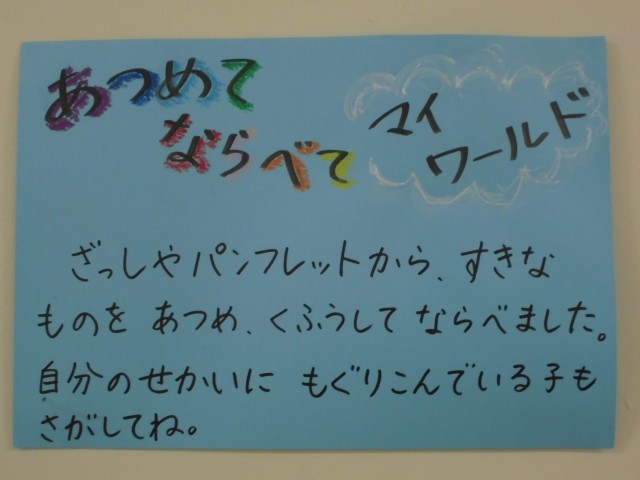 あつめて
ならべて
マイ
ワールド
ざっしやパンフレットから、すきな
ものを あつめ、くふうして ならべました。
自分のせかいに もぐりこんでいる子も
さがしてね。